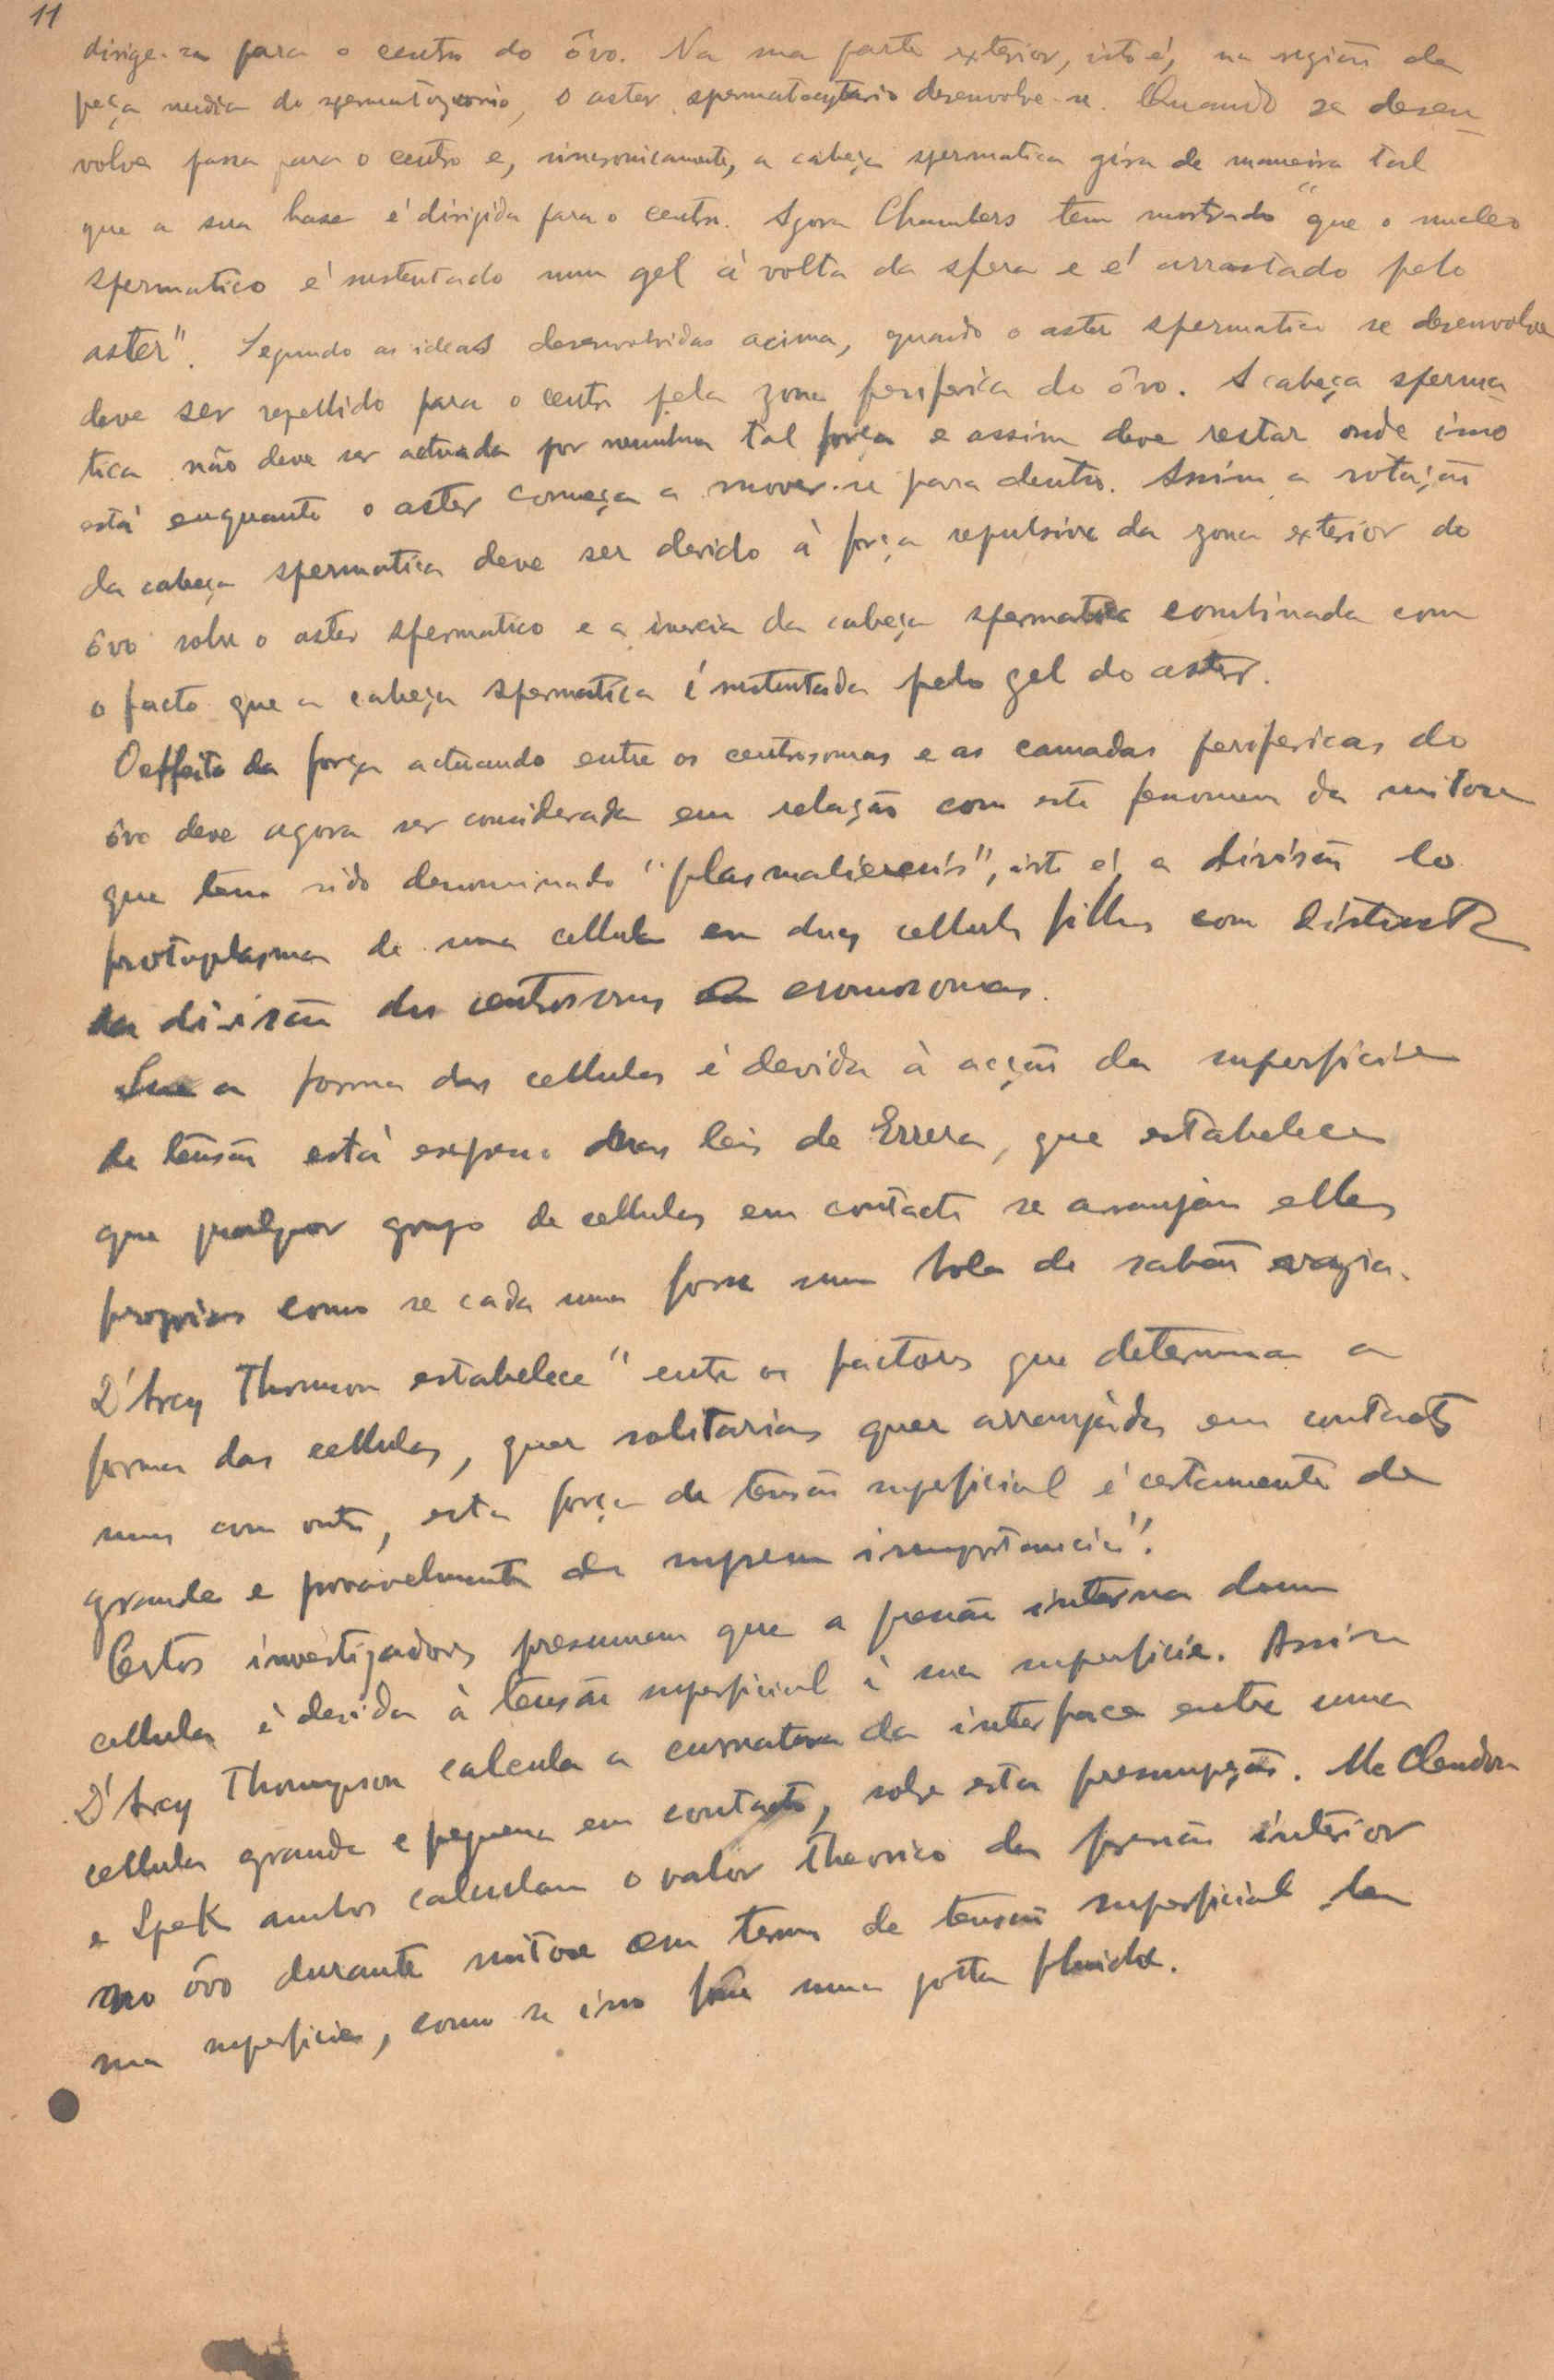 11
dirige-se para o centro do ôvo. Na sua parte exterior, isto é, na região da
peça media do spermatozorio, o aster spermatocytario desenvolve-se. Quando se desen
volve passa para o centro e, sincronicamente, a cabeça spermatica gira de maneira tal
que a sua base é dirigida para o centro. Agora Chambers tem mostrado "que o nucleo
spermatico é sustentado num gel à volta da sfera e é arrastado pelo
aster". Segundo as ideas desenvolvidas acima, quando o aster spermatico se desenvolve
deve ser repellido para o centro pela zona periferica do ôvo. A cabeça sperma
tica não deve ser actuada por nenhuma tal força e assim deve restar onde isso
está enquanto o aster começa a mover-se para dentro. Assim a rotação
da cabeça spermatica deve ser devido à força repulsiva da zona exterior do
ôvo sobre o aster spermatico e a inercia da cabeça spermatica combinada com
o facto que a cabeça spermatica é sustentada pelo gel do aster.
O effeito da força actuando entre os centrosomas e as camadas perifericas do
ôvo deve agora ser considerada em relação com este fenomeno da mitose
que tem sido denominado "plasmalieresis", isto é, a divisão do
protoplasma de uma cellula em duas cellulas filhas com distincta
da divisão dos centrosomas cromosomas.
a forma das cellulas é devida à acção da superficie
de tensão está nas leis de Errera, que estabelece
que qualquer grupo de cellulas em contacto se arranjam ellas
proprias como se cada uma fosse uma bola de sabão vazia.
D'Arcy Thomson estabelece "entre os factores que determina a
forma das cellulas, quer solitarias quer arranjadas em contacto
umas com outras, esta força de tensão superficial é certamente de
grande e provavelmente da suprema importancia".
Certos investigadores presumem que a pressão interna duma
cellula é devida à tensão superficial à sua superficie. Assim
D'Arcy Thompson calcula a curvatura da interface entre uma
cellula grande e pequena em contacto, sobre esta presumpção. Mc Clendon
e Spek ambos calculam o valor theorico da pressão interior
no ôvo durante mitose em termos de tensão superficial da
sua superficie, como se isso fosse uma gotta fluida.